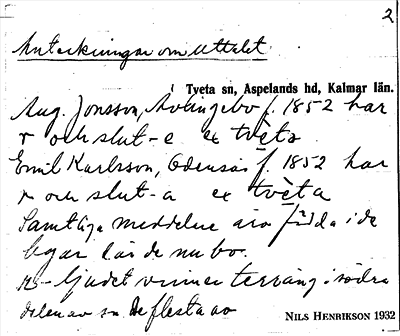 2
Anteckningar om uttalet
i Tveta sn, Aspelands hd, Kalmar län.
Aug. Jonsson, Övlingebo f. 1852 har
r och slut-e ex tvèta
Emil Karlsson, Ödensås f. 1852 har
r och slut-a ex tvèta
Samtliga meddelare äro födda i de
byar där de nu bo.
R-ljudet vinner terräng i södra
delen av sn. De flesta av
NILS HENRIKSON 1932